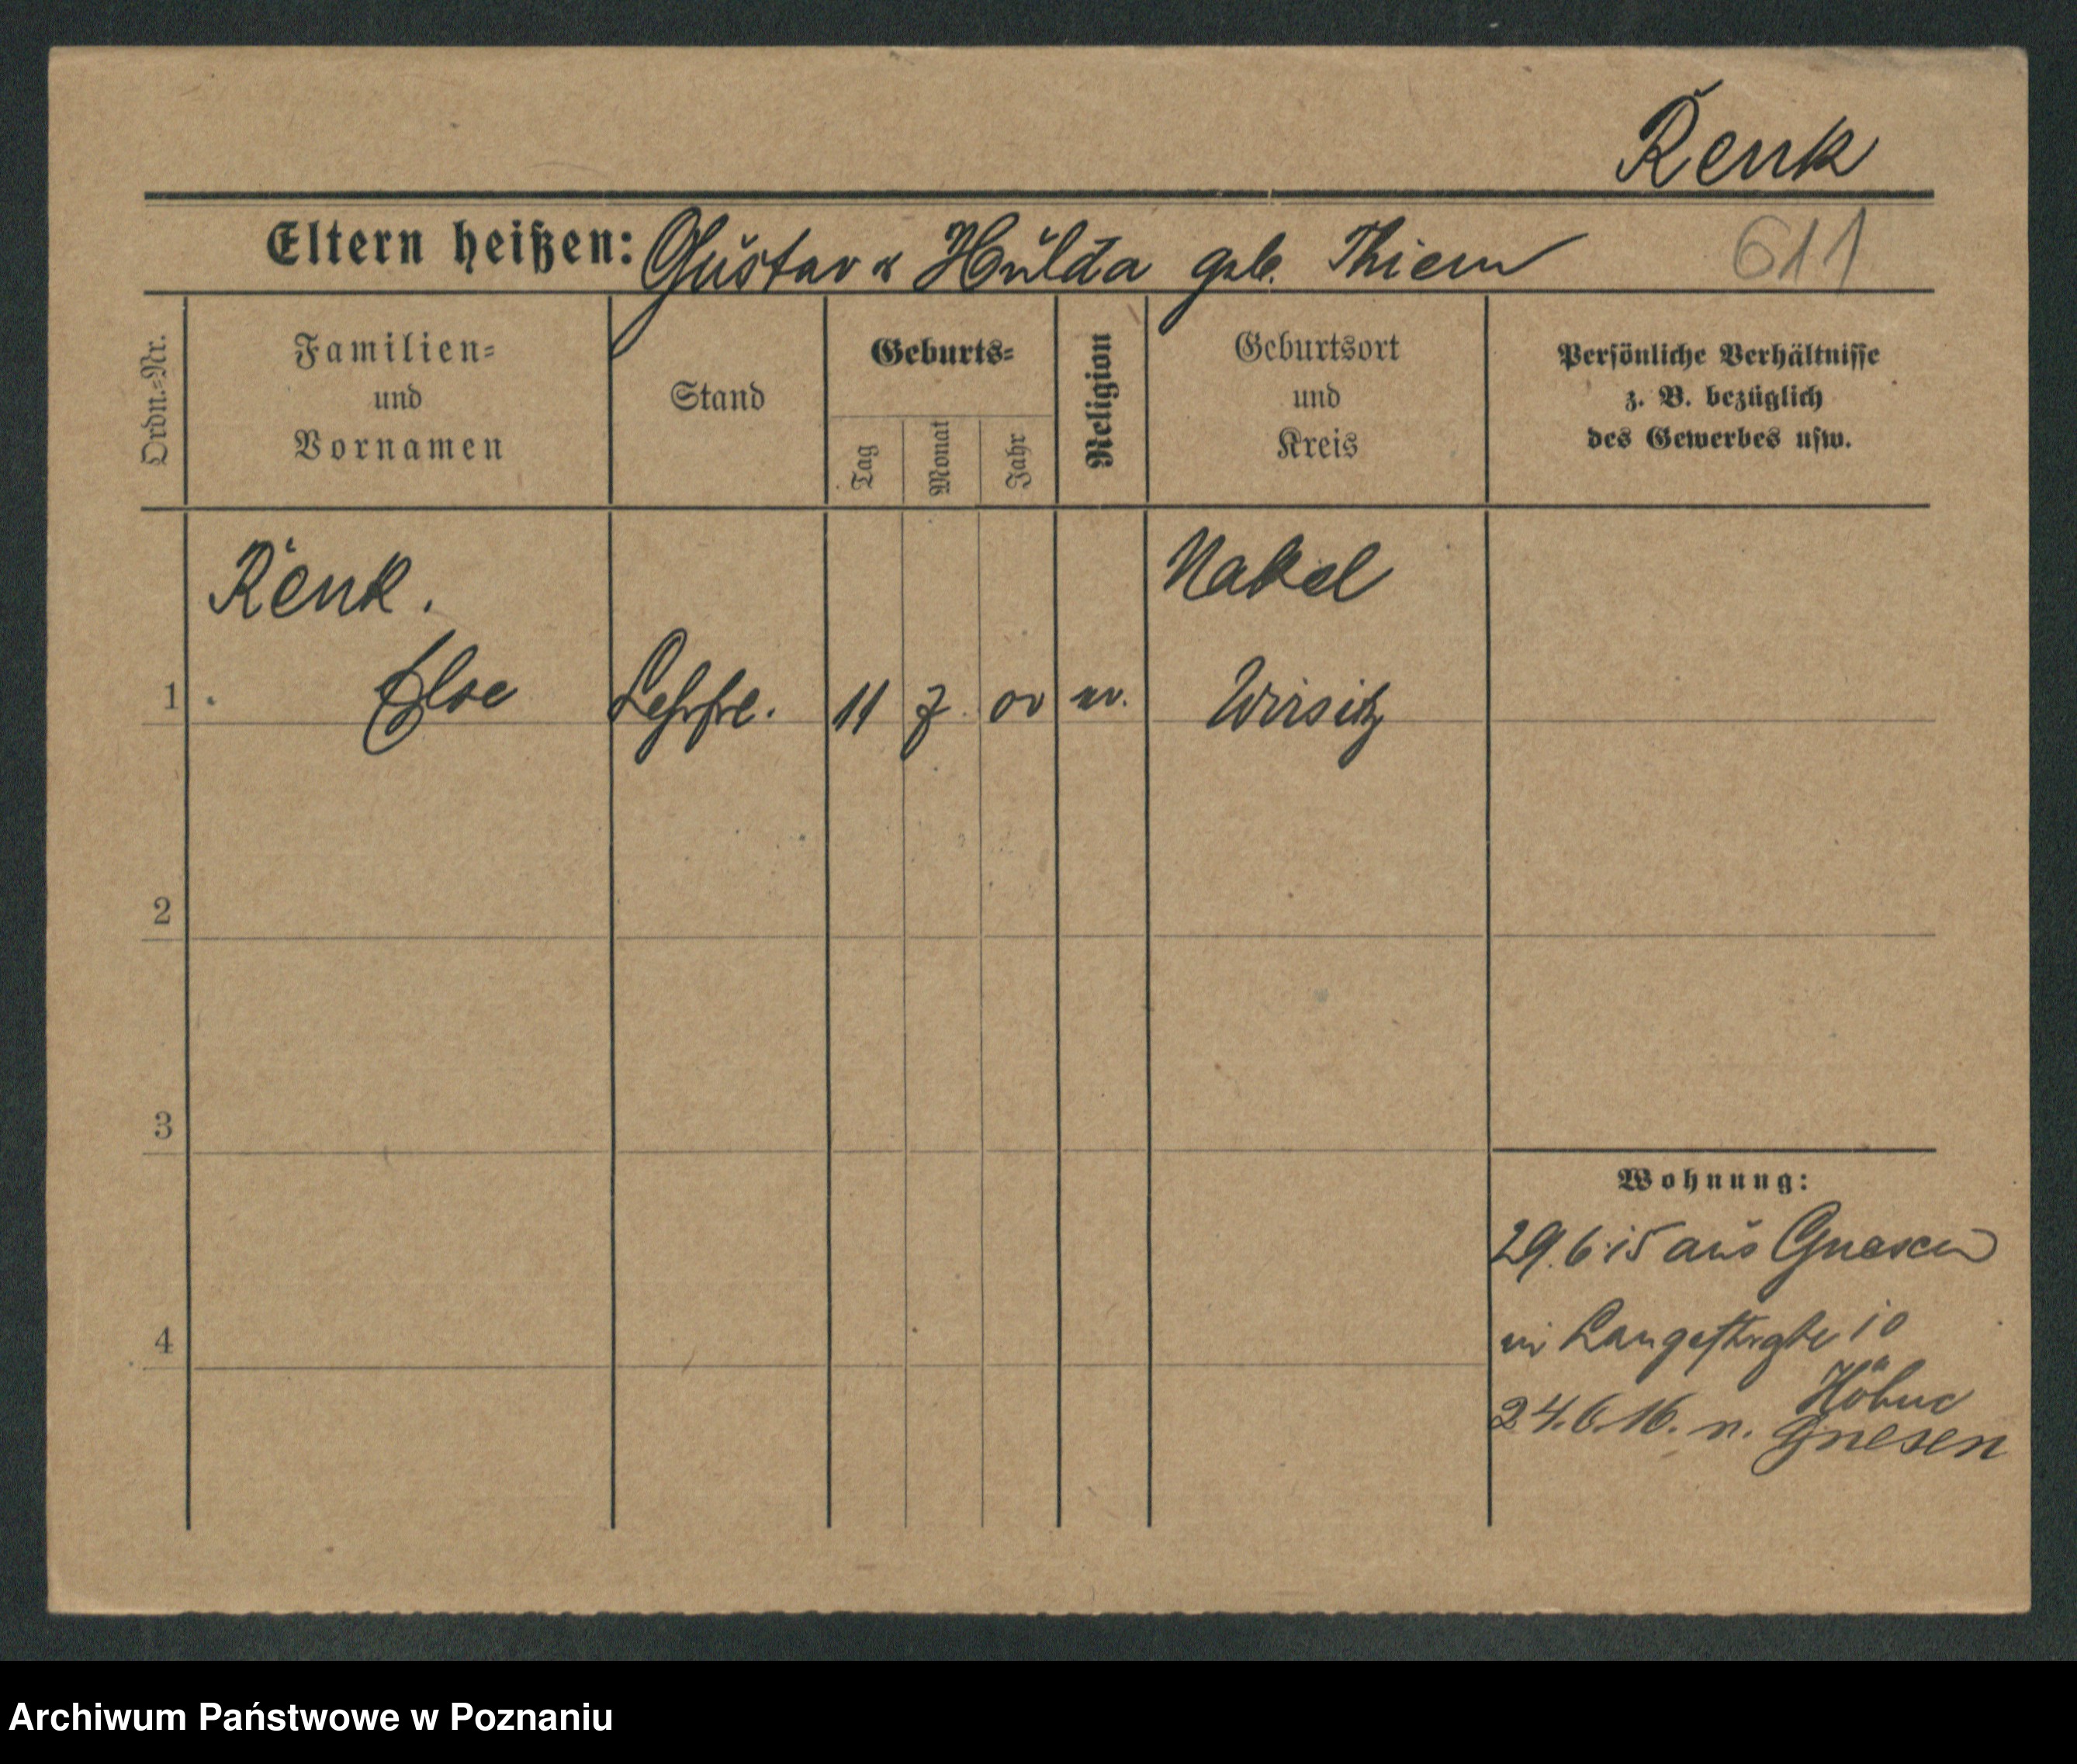 Renk
Eltern heißen: Gustav u Hulda geb. Thiem
611
Ordn.=Nr.
Familien=
und
Vornamen
Stand
Geburts=
Tag
Monat
Jahr
Religion
Geburtsort
und
Kreis
Persönliche Verhältnisse
z. B. bezüglich
des Gewerbes usw.
Renk.
Nakel
1
Else
Lehrfrl.
11
7
00
ev.
Wirsitz
2
3
4
Wohnung:
29.6.15 aus Gnesen
in Langestraße 10
24.6.16. n. Gnesen
Archiwum Państwowe w Poznaniu